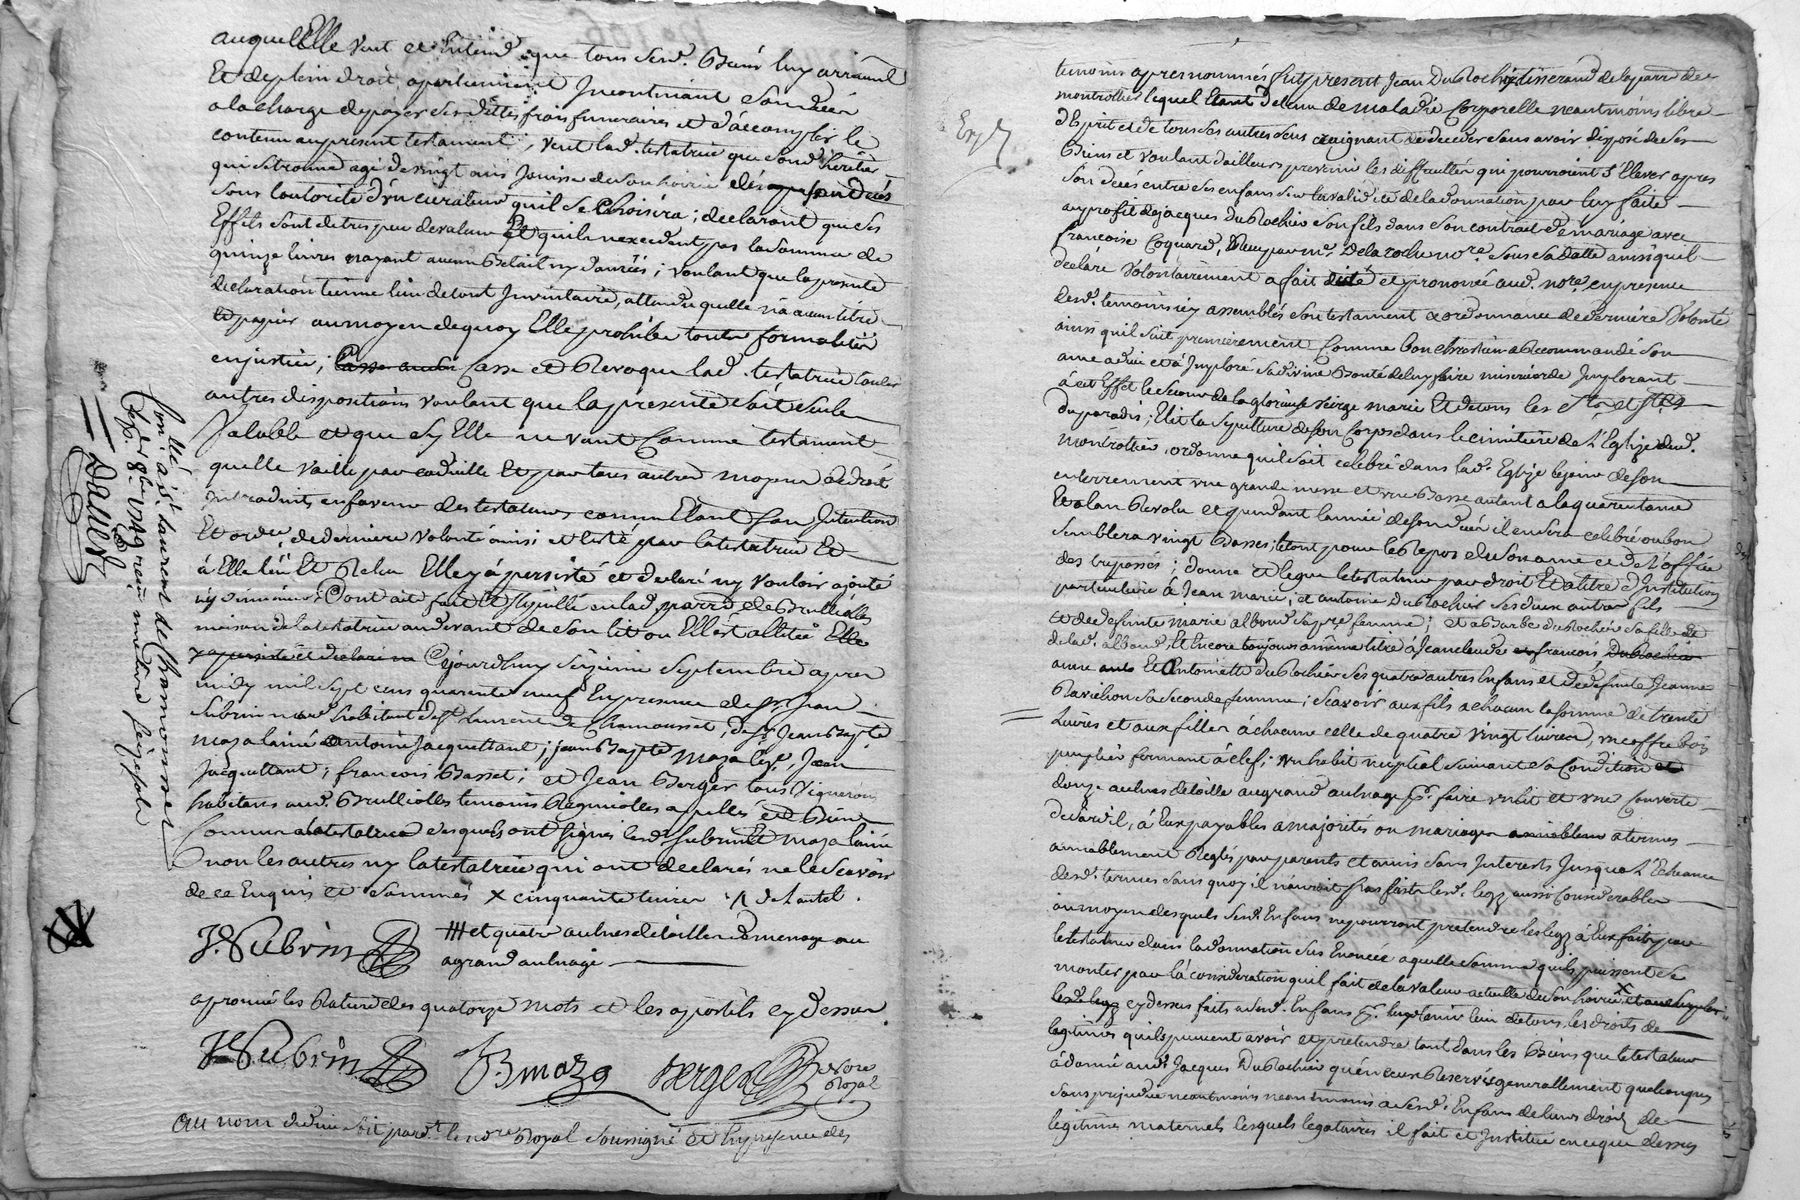 auquel Elle veut et Entend que tous sesd. Biens luy arrivent
Et de plein droit apartiennent Incontinant son deces
a la charge de payer ses dettes frais funeraires et d'accomplir le
contenu au present testament, veut lad. testatrice que sond. heritier
qui se trouve agé de vingt ans Jouisse de son hoirie dés apres son deces
sous lautorité d'un curateur quil se Choisira; declarant que ses
Effets sont de tres peu de valeur Et quils nexcedent pas la somme de
quinze livres nayant aucun Betail ny danrées; voulant que la presente
declaration tienne lieu de tout Inventaire, attendu quelle n'a aucun titre
et papier au moyen de quoy Elle prohibe toutes formalités
en justice; Casse et Revoque lad. testatrice toutes
autres dispositions voulant que la presente soit seule
Valable et que sy Elle ne vaut Comme testament
quelle vaille par codicille Et par tous autres moyens de droit
introduits en faveur des testateurs comme Etant son Intention
Et ordce. de derniere volonté ainsi dicté par la testatrice Et
à Elle leu Et Relu Elle y à persisté et declaré ny vouloir ajouter
ny diminuer. Dont acte fait Et Stipulé en lad. parre de Brullioles
maison de la testatrice au devant de son lit ou Elle est allitée Elle
y a persisté et declaré ne Cejourdhuy seizieme Septembre apres
midy mil sept cens quarante neuf En presence de Sr. Jean
Subrin nore. habitant de St. laurent de Chamousset, de Sr. Jean Bapte.
maza lainé antoine Jacquettant; jean Bapte maza leje., Jean
Jacquettant; francois Basset; et Jean Berger tous Vignerons
habitans aud. Brullioles temoins Regnicolles apellés et Bien
Connus a la testatrice desquels ont signés lesd. Subrin et maza lainé
non les autres ny la testatrice qui ont declarés ne le scavoir
de ce Enquis et sommés x cinquante livres
et quatre aulnes de toille de menage au
a grand aulnage
aprouvé les Rature des quatorze mots et les apostils cy dessus
Js Subrin
Js Subrin JBmaza Berger nore Royal
Au nom de dieu soit pardt. le nore Royal soussigné et En presence des
Conllé. a St. laurent de Chamousset
Dallet
Exp.
temoins apres nommés fut present Jean Du Rochier tisserand de la parre de
montrottier lequel Etant detenu de maladie Corporelle neantmoins libre
d'Esprit et de tous ses autres sens craignant de deceder sans avoir disposé de ses
Biens et voulant dailleurs prevenir les difficultés qui pourroient s'Elever apres
son deces entre ses enfans sur la validité de la donnation par luy faite
au profit de jacques Du Rochier son fils dans son contract de mariage avec
françoise Coquard, Receu par me. Delaroche nore. sous sa datte ainsi quil
declare Volontairement a fait dicté et prononcé aud. nore. en presence
desd. temoins icy assemblés son testament et ordonnance de derniere Volonté
ainsi quil suit premierement Comme bon chretien a Recommandé son
ame a dieu et à Imploré sa divine Bonté de luy faire misericorde Implorant
à cet Effet le secours de la glorieuse Vierge marie Et de tous les Sts. et Stes
du paradis; Elit la sepulture de son Corps dans le cimitiere de l'Eglize dud.
montrottier, ordonne quil soit celebré dans lad. Eglize le jour de son
enterrement une grande messe et une Basse autant a la quarantaine
Et a lan Revolu et pendant lannée de son deces il en sera celebré ou bon
semblera vingt Basses; le tout pour le Repos de son ame et de l'offrée
des trepassés; donne et legue le testateur par droit Et a titre d'Institution
particuliere à Jean marie, et antoine Du Rochier ses deux autres fils
et de defunte marie albond sa pre femme; et a Barbe du Rochier sa fille et
de lad. albond, Et Encore toujours au même titre à Jean claude francois, Du Rochier
anne Et Antoinette Du Rochier ses quatre autres Enfans et de defunte Jeanne
Ravichon sa seconde femme; scavoir aux fils a chacun la somme de trente
Livres et aux filles à chacune celle de quatre vingt livres, un coffre bois
peuplier fermant à clef; un habit nuptial suivant sa Condition et
douze aulnes de toille au grand aulnage pr. faire un lit et une couverte
, à Eux payables a majorités ou mariages a termes
amiablement Reglés par parents et amis sans Interests Jusqua l'Echeance
desd. termes sans quoy il n'auroit pas fait lesd. legs aussi Considerables
au moyen desquels sesd. Enfans ne pourront pretendre les legs à Eux faits par
le testateur dans la donnation sus Enoncée a quelle somme quils puissent se
monter par la consideration quil fait de la valeur actuelle de son hoirie x
lesd. legs cy dessus faits a sesd. Enfans pr. leur tenir lieu de tous les droits de
legitimes quils peuvent avoir et pretendre tant dans les Biens que le testateur
à donné aud. Jacques Du Rochier quén ceux Reservés generallement quelconques
sans prejudice neantmoins a sesd. Enfans de leurs droits de
legitimes maternels lesquels legataires il fait et Institue en ce que dessus